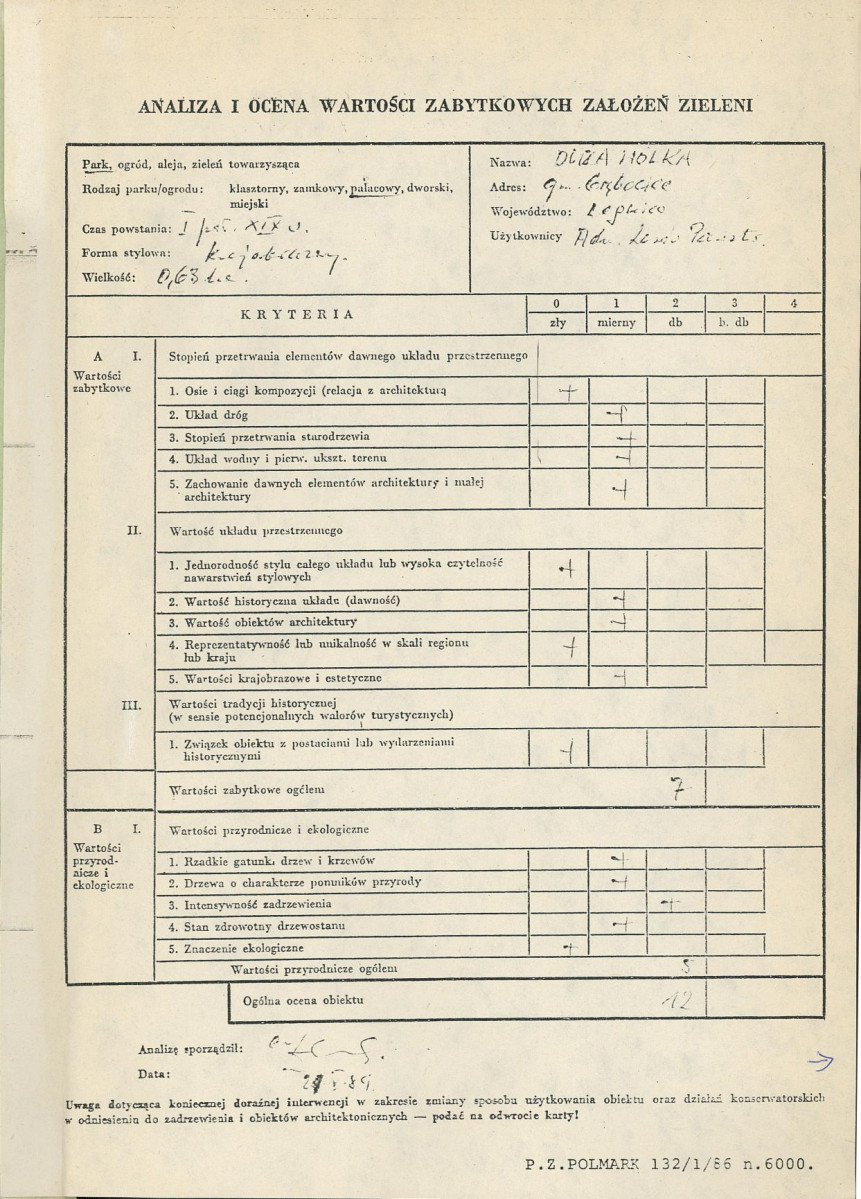 ANALIZA I OCENA WARTOŚCI ZABYTKOWYCH ZAŁOŻEŃ ZIELENI
Park, ogród, aleja, zieleń towarzysząca
Rodzaj parku/ogrodu: klasztorny, zamkowy, pałacowy, dworski,
miejski
Czas powstania: I poł. XIX w.
Forma stylowa: krajobrazowy.
Wielkość: 0,63 ha.
Nazwa: DUŻA WÓLKA
Adres: gm. Grębocice
Województwo: Legnica
Użytkownicy Adm. Lasów Państw.
KRYTERIA
0 1 2 3 4
zły mierny db b. db
A I. Stopień przetrwania elementów dawnego układu przestrzennego
Wartości
zabytkowe
1. Osie i ciągi kompozycji (relacja z architekturą +
2. Układ dróg +
3. Stopień przetrwania starodrzewia +
4. Układ wodny i pierw. ukszt. terenu +
5. Zachowanie dawnych elementów architektury i małej
architektury +
II. Wartość układu przestrzennego
1. Jednorodność stylu całego układu lub wysoka czytelność
nawarstwień stylowych +
2. Wartość historyczna układu (dawność) +
3. Wartość obiektów architektury +
4. Reprezentatywność lub unikalność w skali regionu
lub kraju +
5. Wartości krajobrazowe i estetyczne +
III. Wartości tradycji historycznej
(w sensie potencjonalnych walorów turystycznych)
1. Związek obiektu z postaciami lub wydarzeniami
historycznymi +
Wartości zabytkowe ogółem 7
B I. Wartości przyrodnicze i ekologiczne
Wartości
przyrod-
nicze i
ekologiczne
1. Rzadkie gatunki drzew i krzewów +
2. Drzewa o charakterze pomników przyrody +
3. Intensywność zadrzewienia +
4. Stan zdrowotny drzewostanu +
5. Znaczenie ekologiczne +
Wartości przyrodnicze ogółem 5
Ogólna ocena obiektu 12
Analizę sporządził:
Data:
Uwaga dotycząca koniecznej doraźnej interwencji w zakresie zmiany sposobu użytkowania obiektu oraz działań konserwatorskich
w odniesieniu do zadrzewienia i obiektów architektonicznych — podać na odwrocie karty!
P.Z.POLMARK 132/1/86 n.6000.